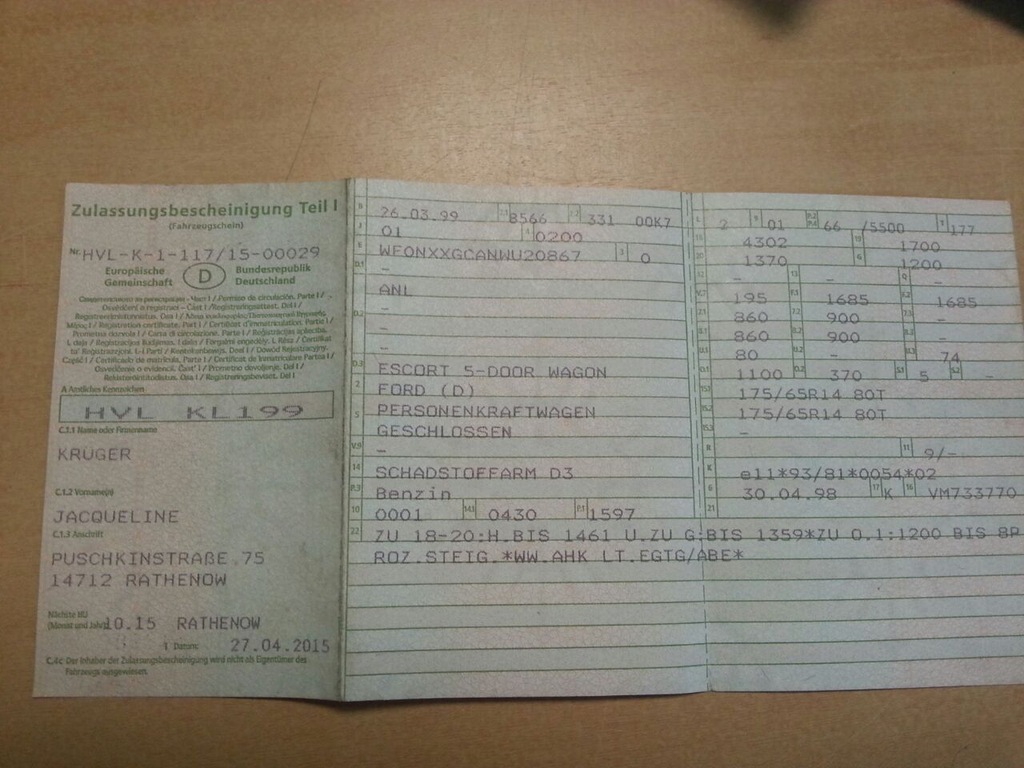 Zulassungsbescheinigung Teil I
(Fahrzeugschein)
Nr. HVL-K-1-117/15-00029
Europäische Gemeinschaft
D
Bundesrepublik Deutschland
A Amtliches Kennzeichen
HVL KL199
C.1.1 Name oder Firmenname
KRÜGER
C.1.2 Vorname(n)
JACQUELINE
C.1.3 Anschrift
PUSCHKINSTRAßE 75
14712 RATHENOW
Nächste HU
(Monat und Jahr) 10.15 RATHENOW
I Datum: 27.04.2015
C.4c Der Inhaber der Zulassungsbescheinigung wird nicht als Eigentümer des
Fahrzeugs ausgewiesen.
B 26.03.99 2.1 8566 2.2 331 00K7
J 01 4 0200
E WF0NXXGCANWU20867 3 0
D.1 -
ANL
D.2 -
-
-
D.3 ESCORT 5-DOOR WAGON
2 FORD (D)
5 PERSONENKRAFTWAGEN
GESCHLOSSEN
V.9 -
14 SCHADSTOFFARM D3
P.3 Benzin
10 0001 14.1 0430 P.1 1597
22 ZU 18-20:H.BIS 1461 U.ZU G:BIS 1359*ZU O.1:1200 BIS 8P
ROZ.STEIG.*WW.AHK LT.EGTG/ABE*
L 2 9 01 P.2 P.4 66 /5500 T 177
18 4302 19 1700
20 1370 G 1200
12 - 13 - Q -
V.7 195 F.1 1685 F.2 1685
7.1 860 7.2 900 7.3 -
8.1 860 8.2 900 8.3 -
U.1 80 U.2 - U.3 74
O.1 1100 O.2 370 S.1 5 S.2 -
15.1 175/65R14 80T
15.2 175/65R14 80T
15.3 -
R 11 9/-
K e11*93/81*0054*02
6 30.04.98 17 K 16 VM733770
21